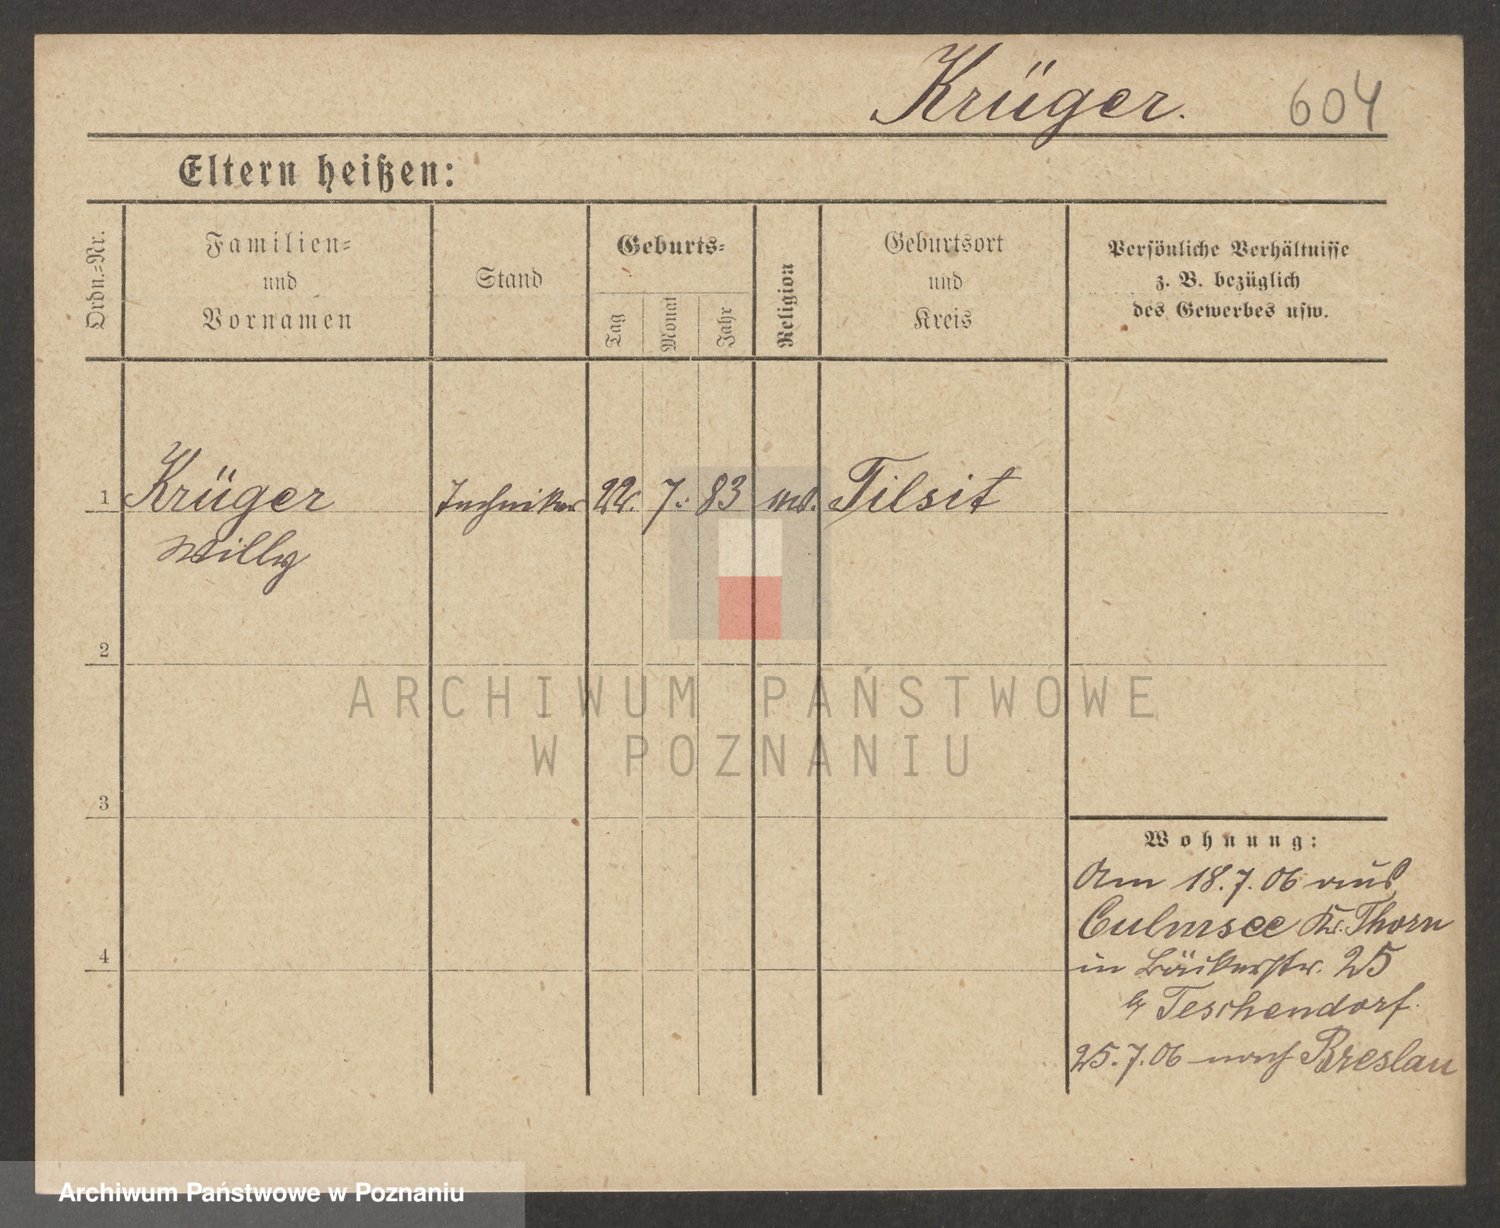 Krüger. 604
Eltern heißen:
Ordn.=Nr.
Familien=
und
Vornamen
Stand
Geburts=
Tag
Monat
Jahr
Religion
Geburtsort
und
Kreis
Persönliche Verhältnisse
z. B. bezüglich
des Gewerbes usw.
1 Krüger Techniker 22. 7. 83 Tilsit
Willy
2
3
4
Wohnung:
Am 18.7.06 aus
Culmsee Kr. Thorn
in Bäckerstr. 25
Teschendorf.
25.7.06 nach Breslau
ARCHIWUM PAŃSTWOWE
W POZNANIU
Archiwum Państwowe w Poznaniu